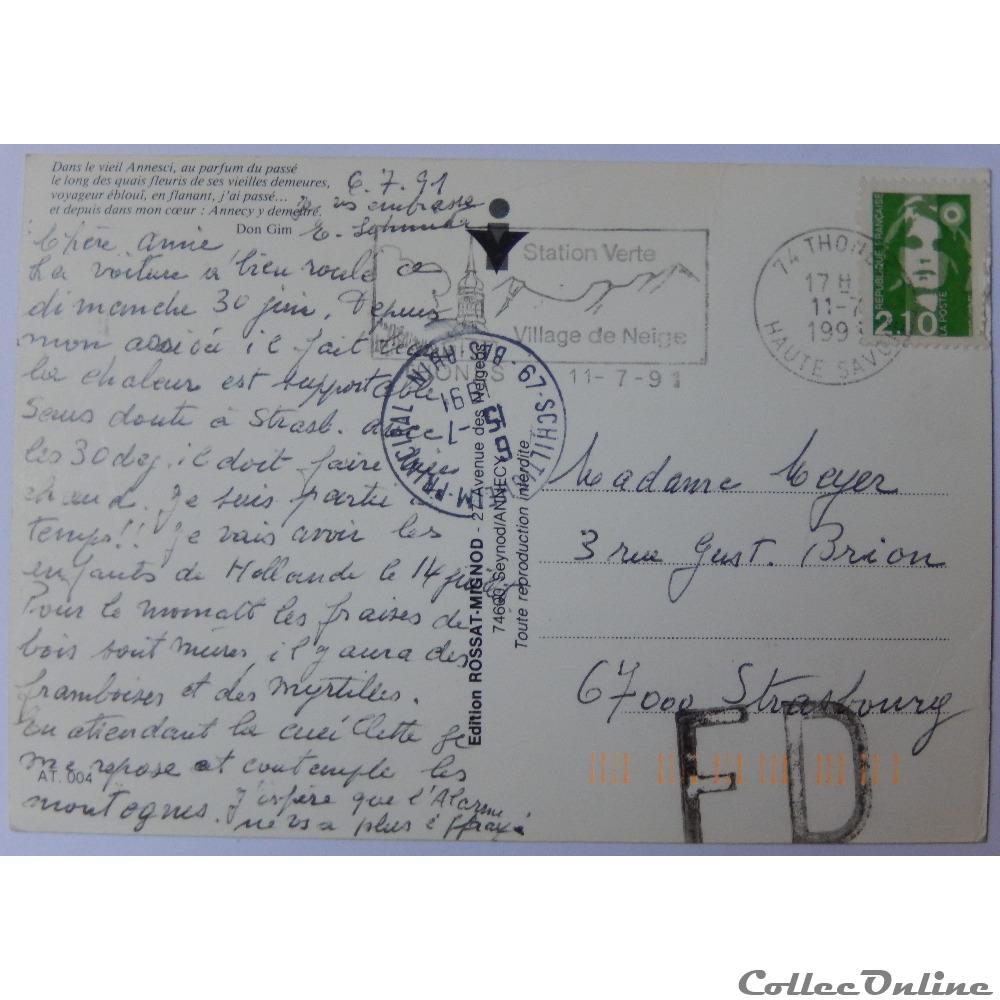 Dans le vieil Annesci, au parfum du passé
le long des quais fleuris de ses vieilles demeures,
voyageur ébloui, en flanant, j'ai passé...
et depuis dans mon cœur : Annecy y demeure.
Don Gim
6.7.91
Je vs embrasse
Chère Annie
La voiture a bien roulé ce
dimanche 30 juin. Depuis
mon arrivée il fait beau
la chaleur est supportable
Sans doute à Strasb. avec
les 30 deg. il doit faire
chaud. Je suis partie à
temps!! Je vais avoir les
enfants de Hollande le 14 juillet
Pour le momatt les fraises de
bois sont mûres, il y aura des
framboises et des myrtilles.
En attendant la cueillette je
me repose et contemple les
montagnes. J'espère que l'Alarme
ne vs a plus effrayé
AT. 004
Edition ROSSAT-MIGNOD - 27, Avenue des Neigeos
74600 Seynod/ANNECY
Toute reproduction interdite
Station Verte
Village de Neige
11-7-91
74 THON
17 H
11-7
199
HAUTE SAVOIE
67-SCHILTIG
BAS-RHIN
PRINCIPAL
REPUBLIQUE FRANÇAISE
LA POSTE
2,10
Madame Meyer
3 rue Gust. Brion
67000 Strasbourg
FD
CollecOnline